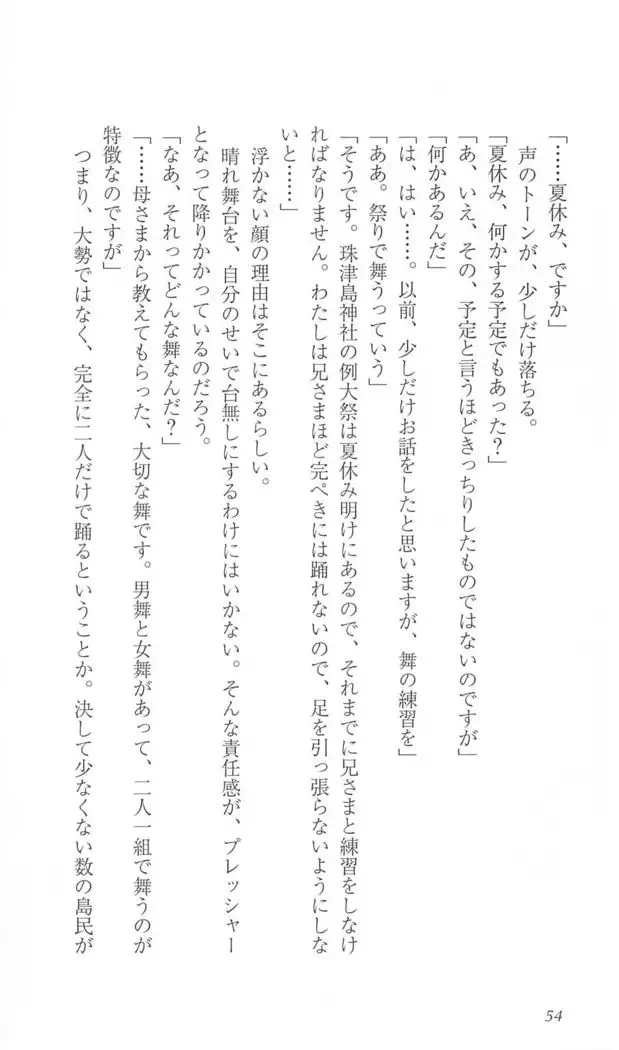 「……夏休み、ですか」
声のトーンが、少しだけ落ちる。
「夏休み、何かする予定でもあった?」
「あ、いえ、その、予定と言うほどきっちりしたものではないのですが」
「何かあるんだ」
「は、はい……。以前、少しだけお話をしたと思いますが、舞の練習を」
「ああ。祭りで舞うっていう」
「そうです。珠津島神社の例大祭は夏休み明けにあるので、それまでに兄さまと練習をしなけ
ればなりません。わたしは兄さまほど完ぺきには踊れないので、足を引っ張らないようにしな
いと……」
浮かない顔の理由はそこにあるらしい。
晴れ舞台を、自分のせいで台無しにするわけにはいかない。そんな責任感が、プレッシャー
となって降りかかっているのだろう。
「なあ、それってどんな舞なんだ?」
「……母さまから教えてもらった、大切な舞です。男舞と女舞があって、二人一組で舞うのが
特徴なのですが」
つまり、大勢ではなく、完全に二人だけで踊るということか。決して少なくない数の島民が
54